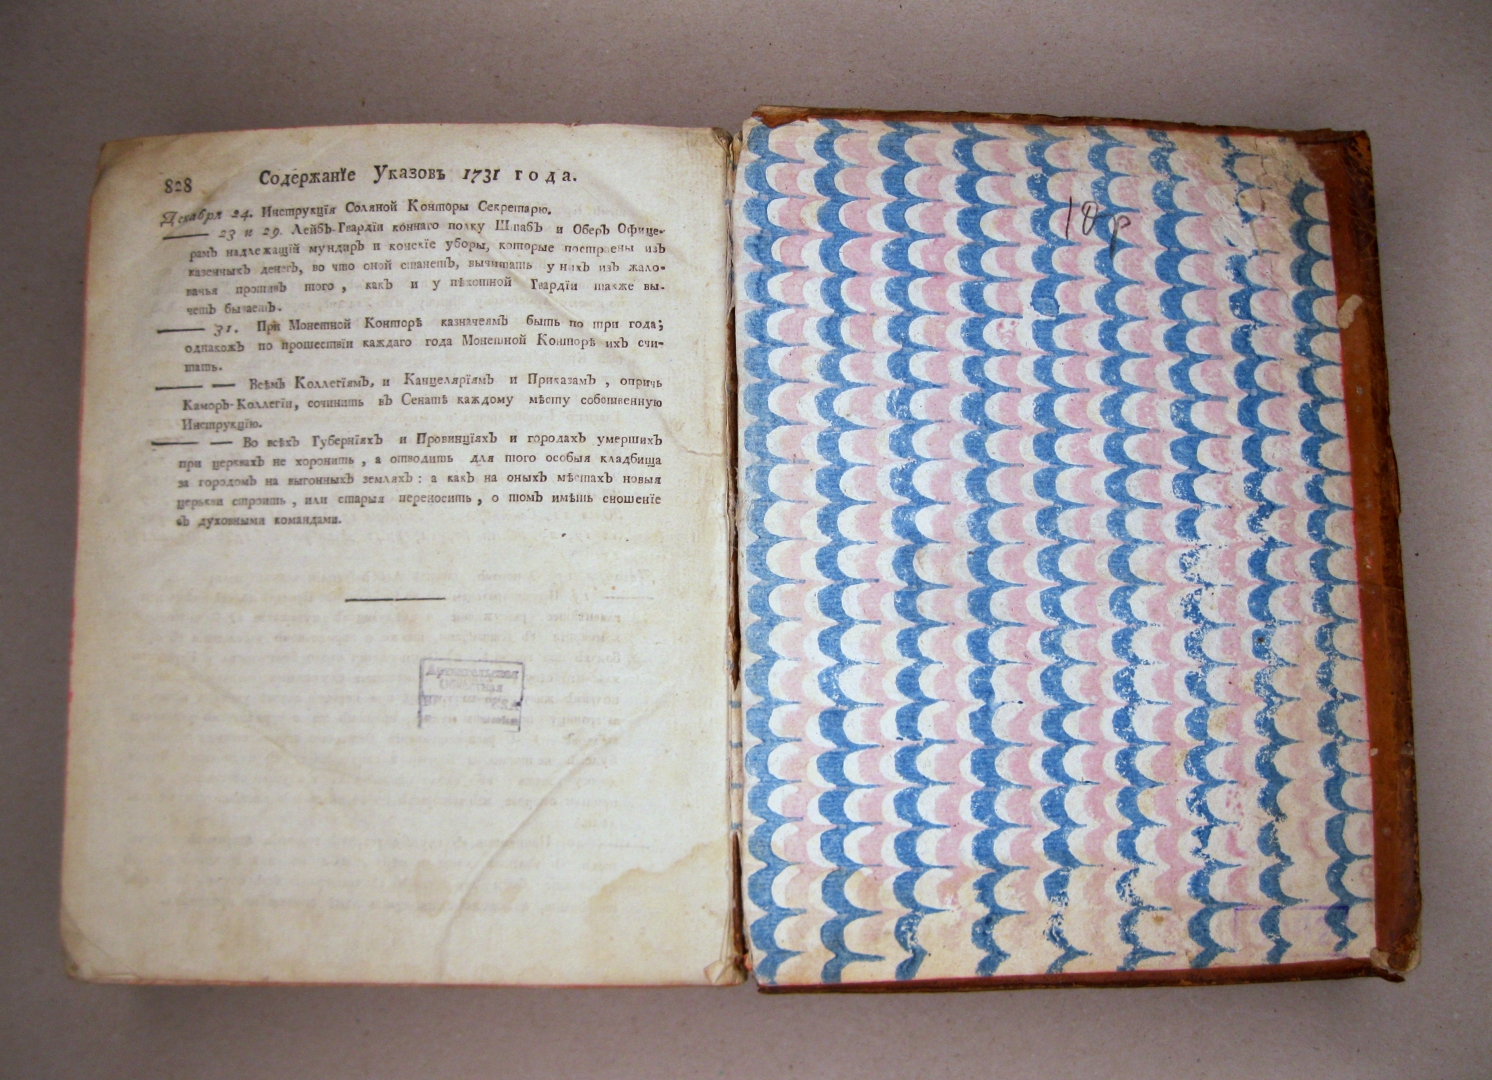 828
Содержанїе Указовъ 1731 года.
Декабря 24. Инструкцїя Соляной Конторы Секретарю.
23 и 29. Лейбъ-Гвардїи коннаго полку Штабъ и Оберъ Офице-
рамъ надлежащїй мундиръ и конскїе уборы, которые построены изъ
казенныхъ денегъ, во что оной станетъ, вычитать у нихъ изъ жало-
ванья противъ того, какъ и у пѣхотной Гвардїи также вы-
четъ бываетъ.
31. При Монетной Конторѣ казначеямъ быть по три года;
однакожъ по прошествїи каждаго года Монетной Конторѣ ихъ счи-
тать.
Всѣмъ Коллегїямъ, и Канцелярїямъ и Приказамъ, опричь
Каморъ-Коллегїи, сочинить въ Сенатѣ каждому мѣсту собственную
Инструкцїю.
Во всѣхъ Губернїяхъ и Провинцїяхъ и городахъ умершихъ
при церквахъ не хоронить, а отводить для того особыя кладбища
за городомъ на выгонныхъ земляхъ: а какъ на оныхъ мѣстахъ новыя
церькви строить, или старыя переносить, о томъ имѣть сношенїе
съ духовными командами.
Областная
10 р